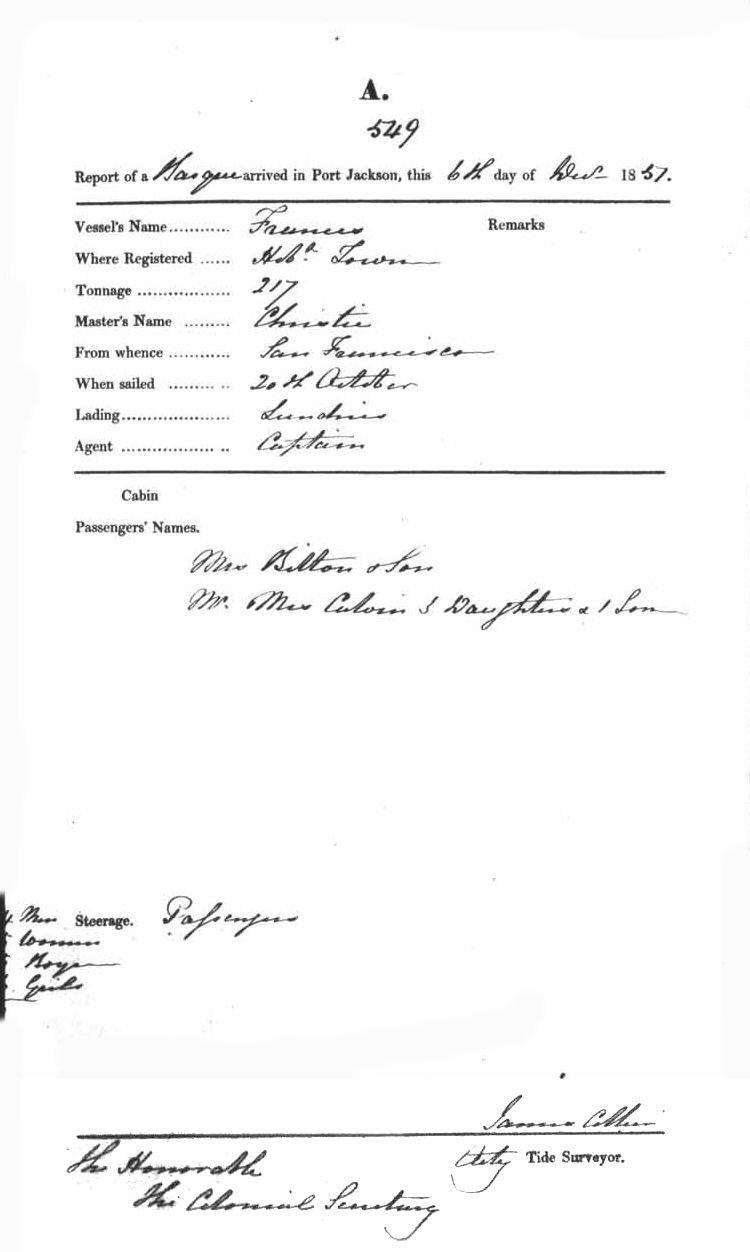 A.
549
Report of a Barque arrived in Port Jackson, this 6th day of Decr 1851.
Vessel's Name............ Frances Remarks
Where Registered ...... Hobt Town
Tonnage .................. 217
Master's Name ......... Christie
From whence ............ San Francisco
When sailed ......... .. 20th October
Lading..................... Sundries
Agent .................. .. Captain
Cabin
Passengers' Names.
Mrs Bilton & Son
Mr. Mrs Colvin 3 Daughters & 1 Son
Men Steerage. Passengers
Women
Boys
Girls
James
Tide Surveyor.
The Honorable
The Colonial Secretary